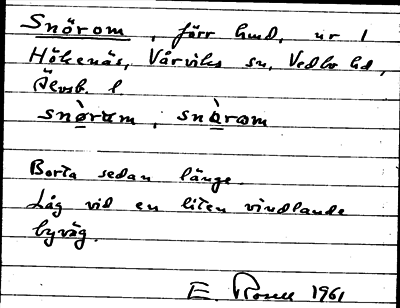 Snörom, förr hmd. ur 1
Hökenäs, Vårviks sn, Vedbo hd,
Älvsb. l
snɵ̀ram, snɑ̀ram
Borta sedan länge.
Låg vid en liten vindlande
byväg.
E. 1961